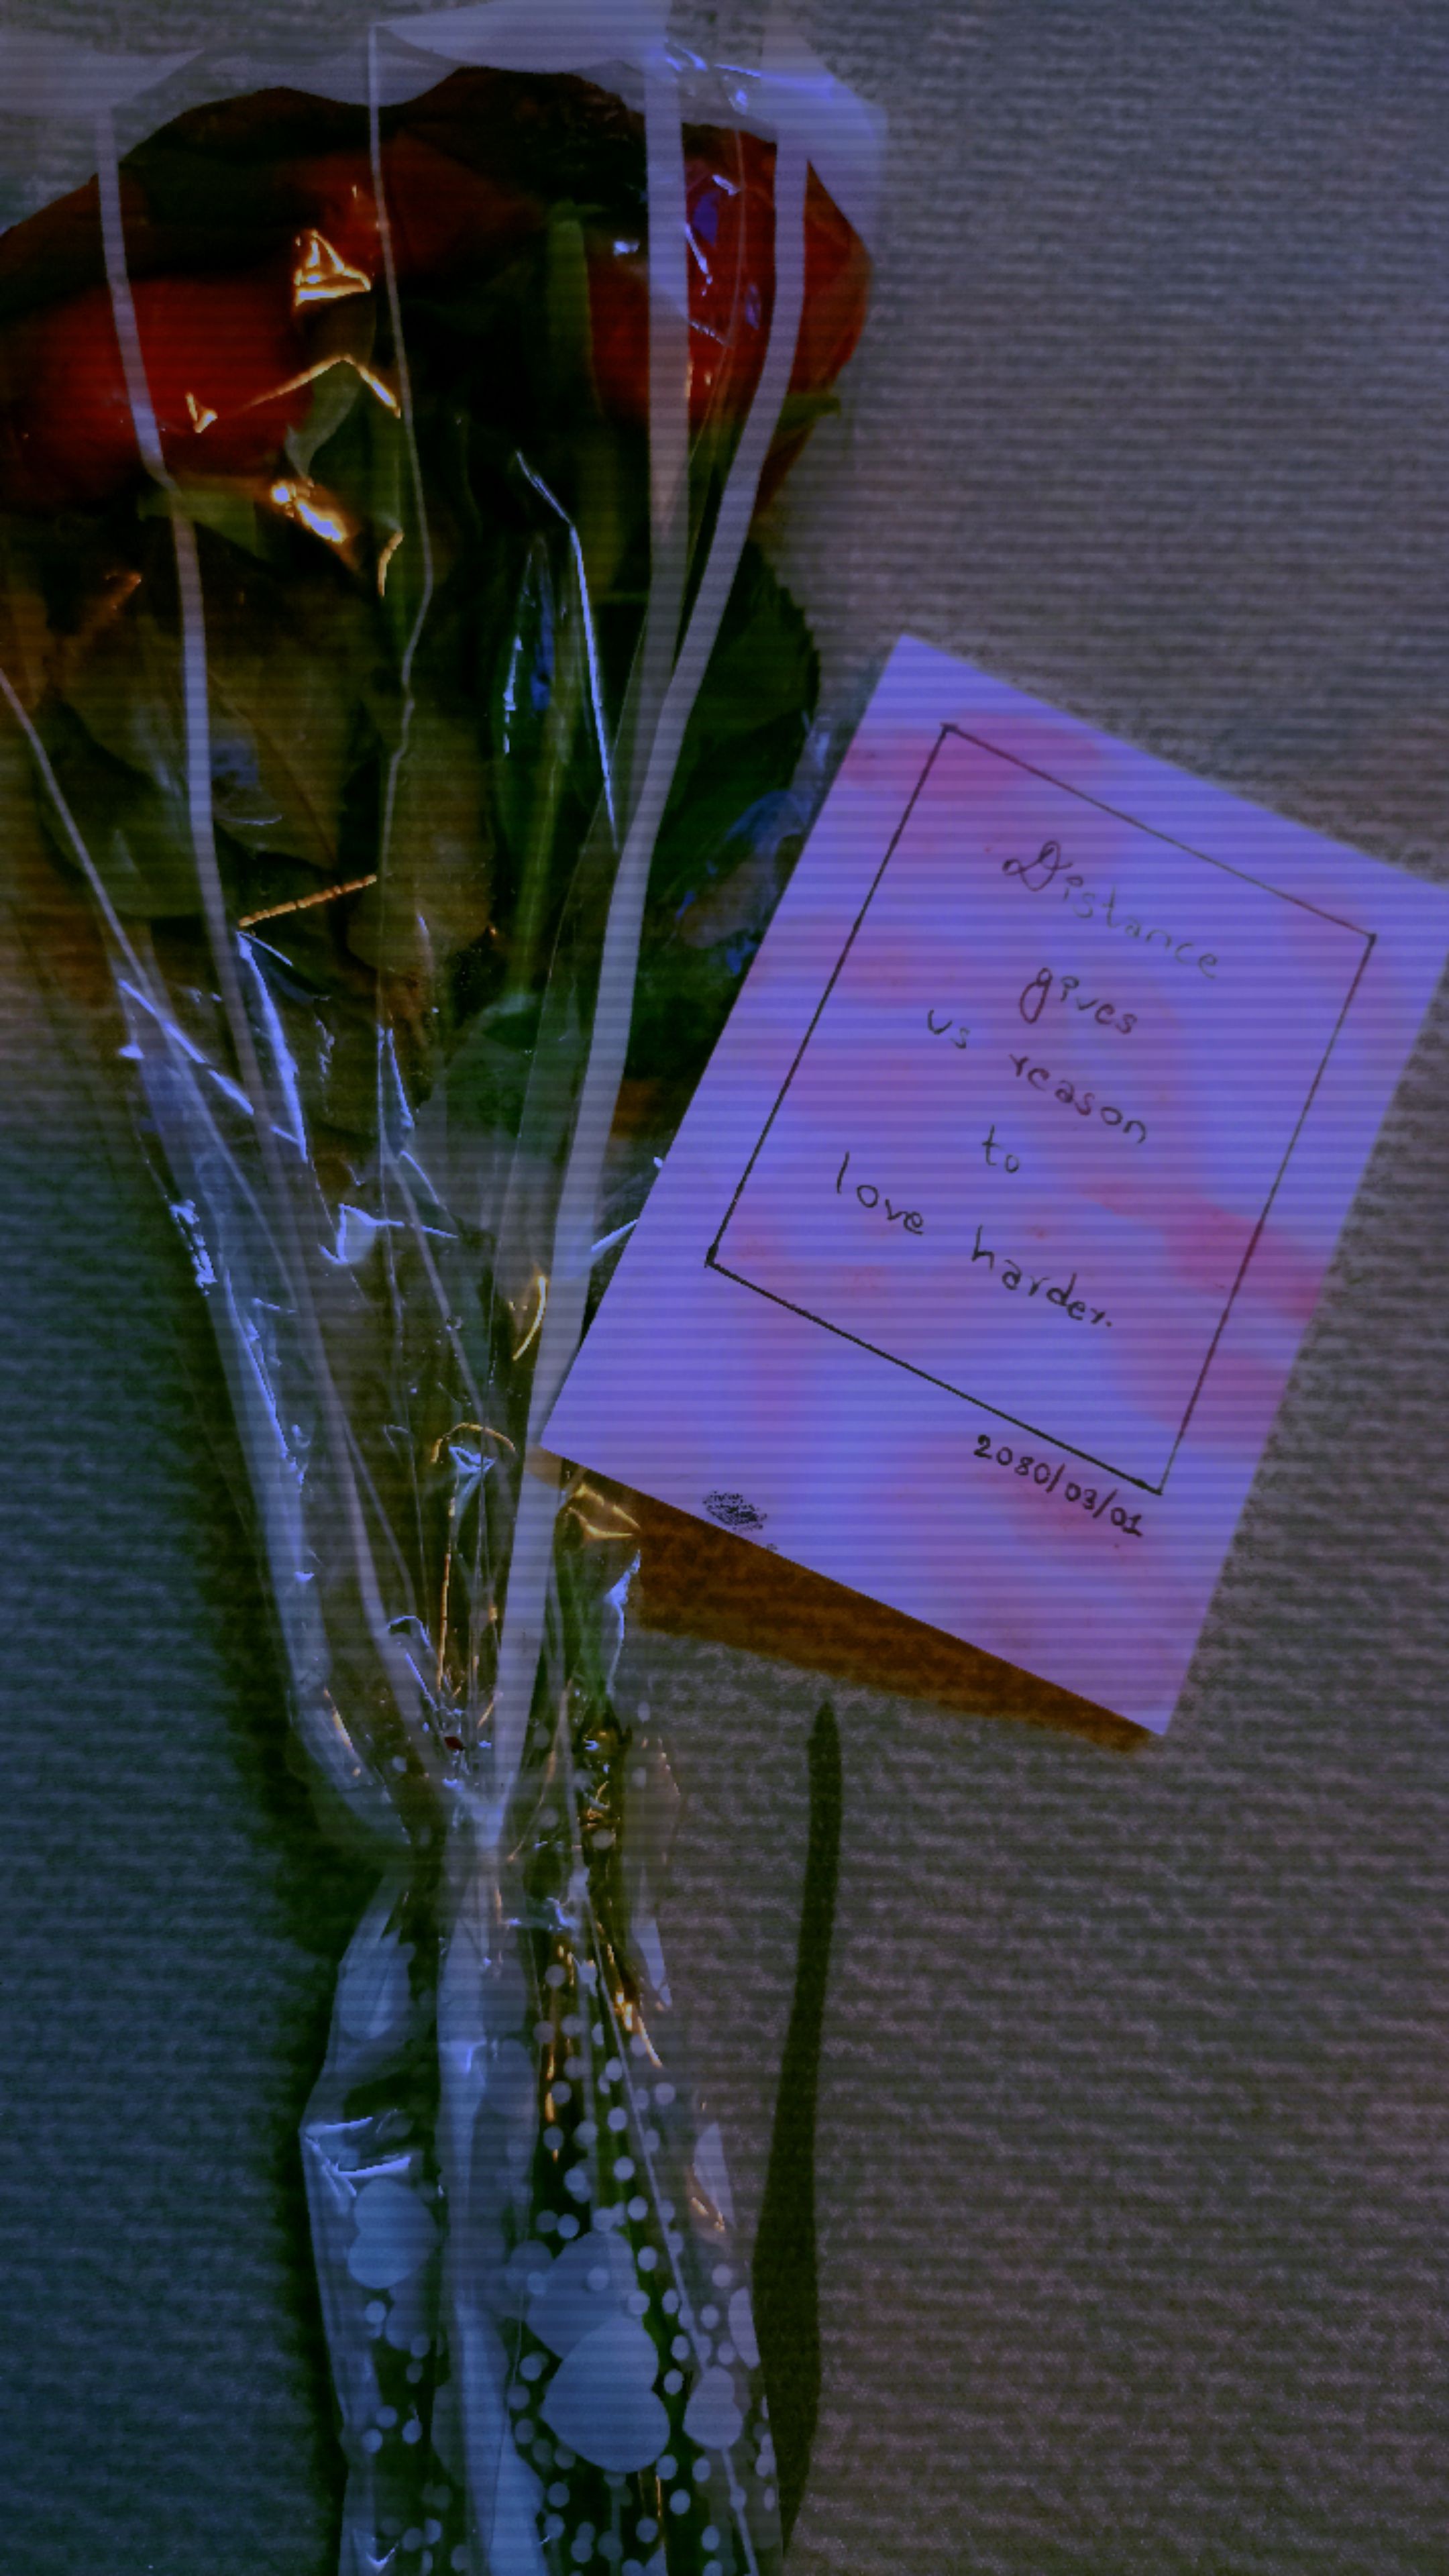 Distance
gives
us reason
to
love harder.
2080/03/01